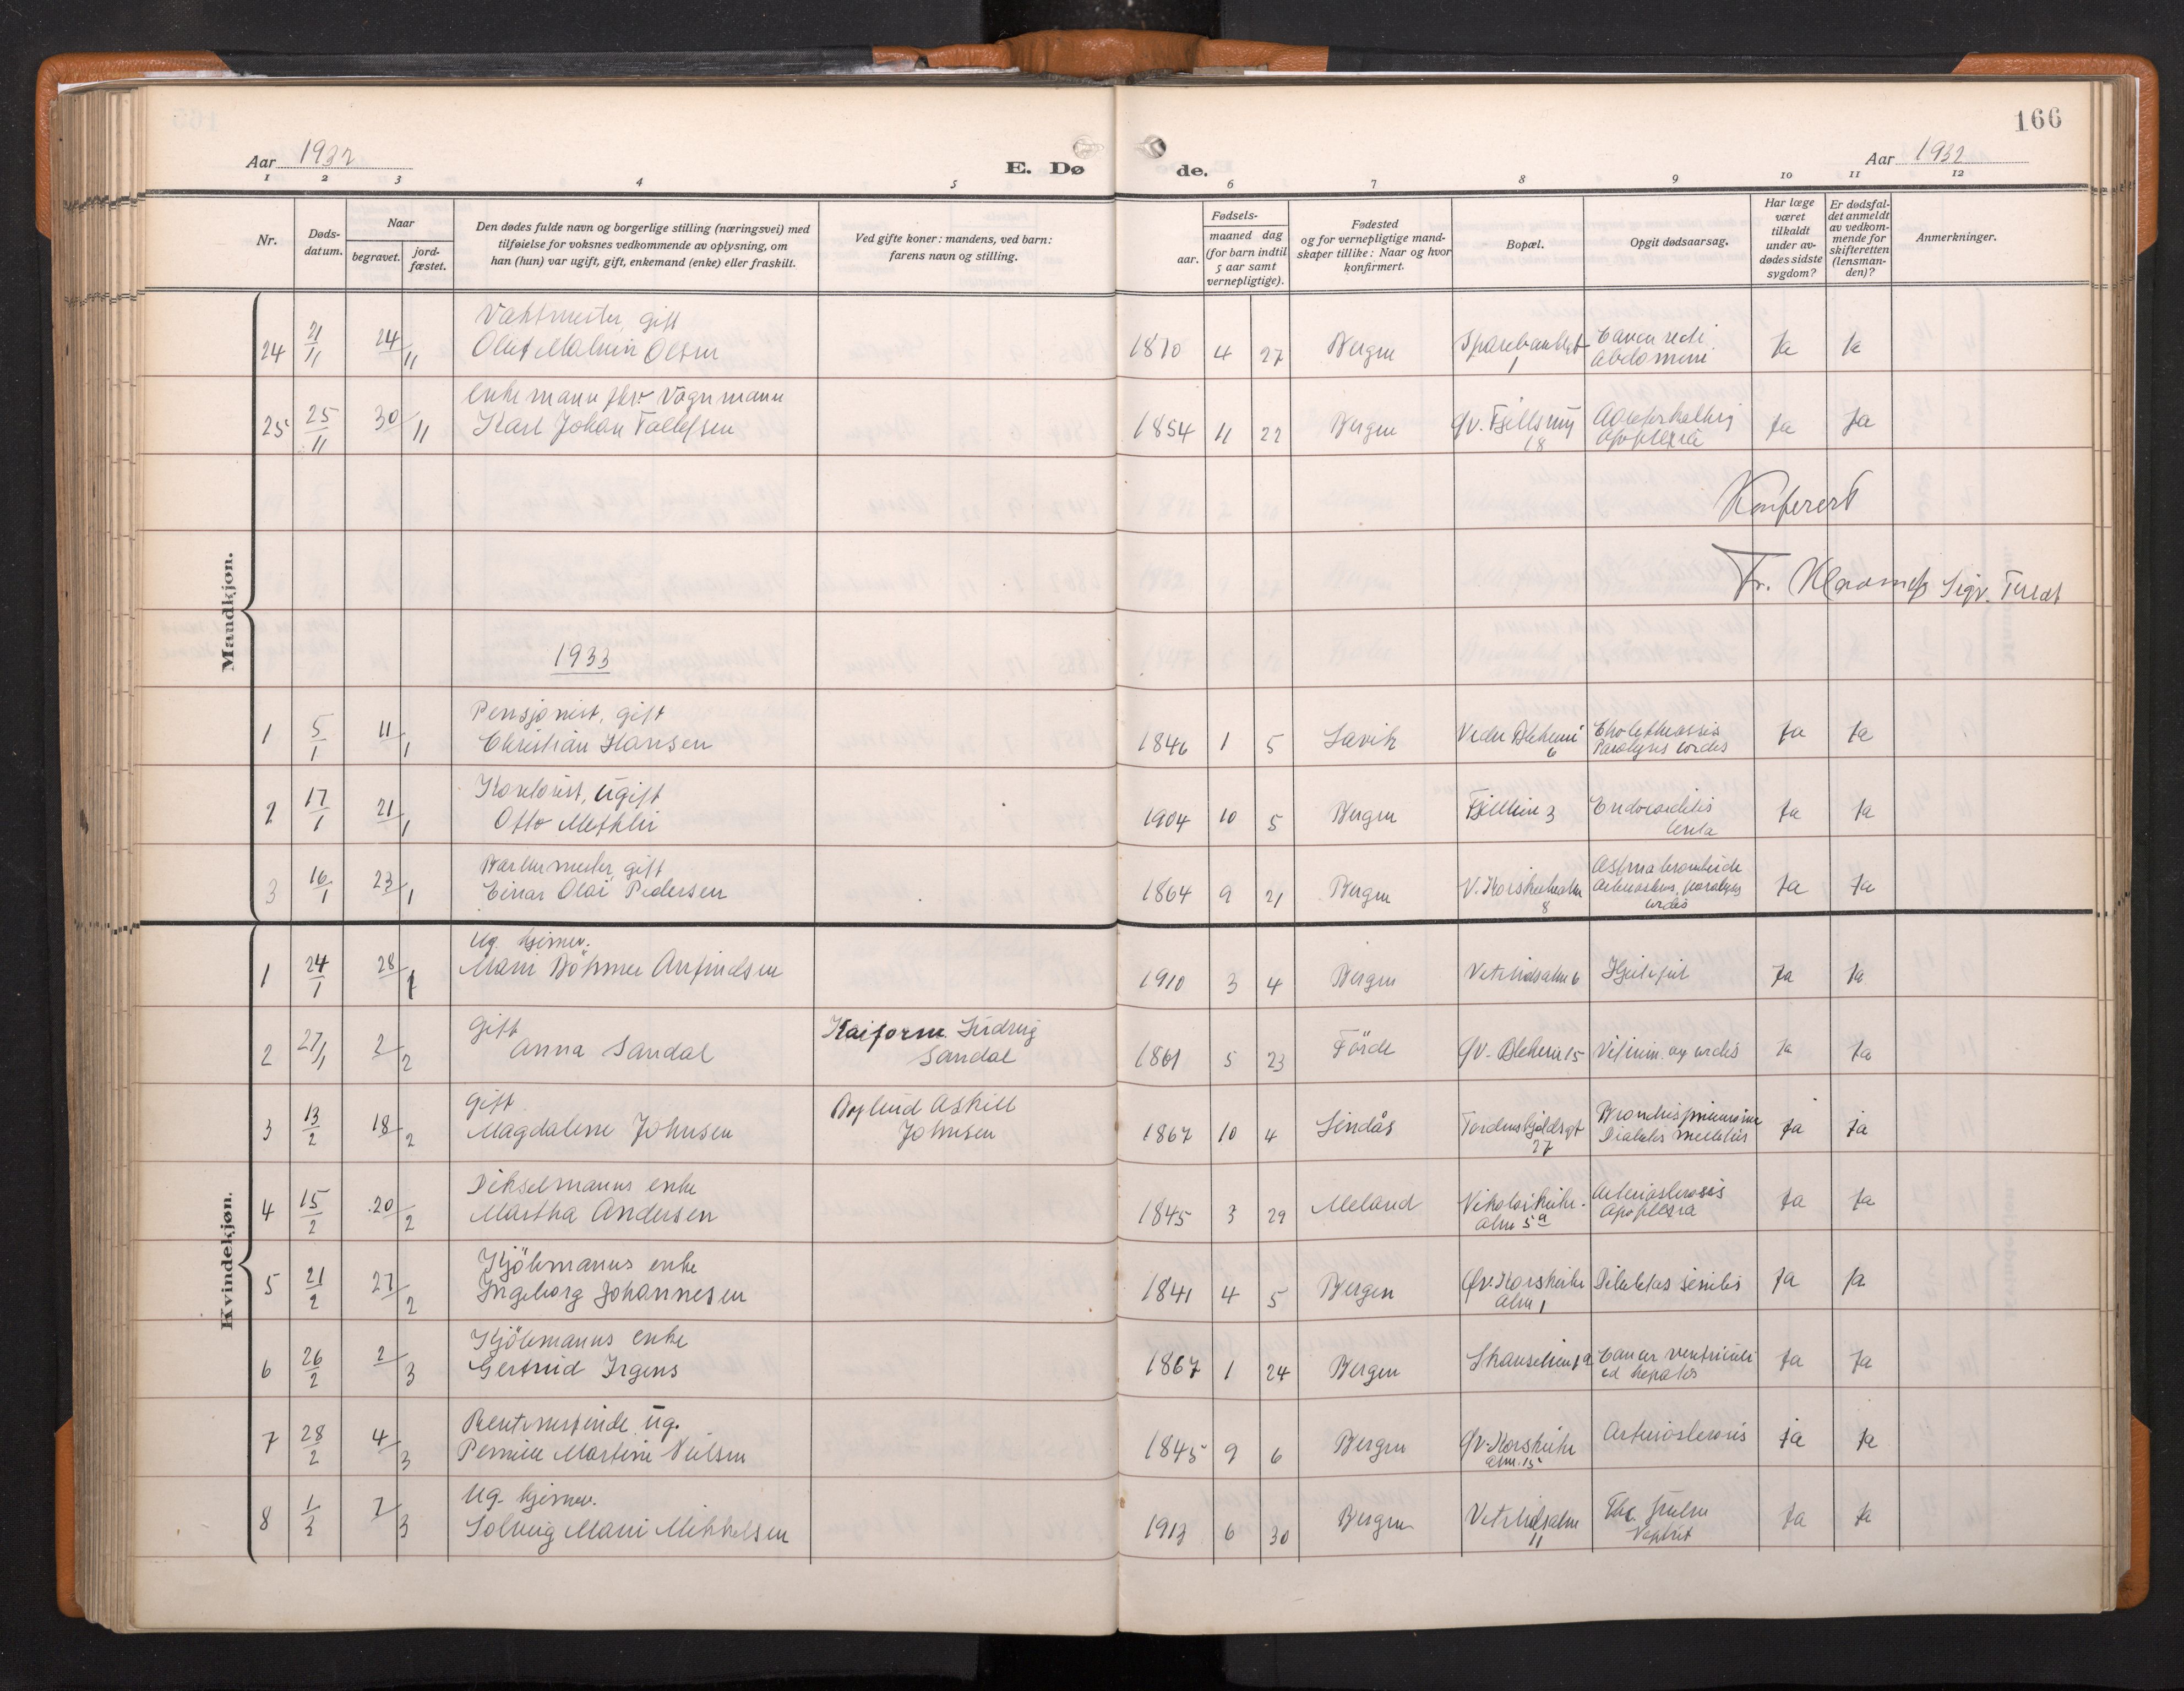 166
Aar 1932
E. Dø
de.
Aar 1932
1 2 3 4 5 6 7 8 9 10 11 12
Nr.
Døds-
datum.
Naar
begravet.
jord-
fæstet.
Den dødes fulde navn og borgerlige stilling (næringsvei) med
tilføielse for voksnes vedkommende av oplysning, om
han (hun) var ugift, gift, enkemand (enke) eller fraskilt.
Ved gifte koner: mandens, ved barn:
farens navn og stilling.
Fødsels-
aar.
maaned dag
(for barn indtil
5 aar samt
vernepligtige).
Fødested
og for vernepligtige mand-
skaper tillike: Naar og hvor
konfirmert.
Bopæl.
Opgit dødsaarsag.
Har læge
været
tilkaldt
under av-
dødes sidste
sygdom?
Er dødsfal-
det anmeldt
av vedkom-
mende for
skifteretten
(lensman-
den)?
Anmerkninger.
Mandkjøn.
Vaktmester, gift
24 21/11 24/11 Olaf Malvin Olsen 1870 4 27 Bergen Sparebankgt 1 Cancer recti Abdomin Ja Ja
Enkemann fhv. Vognmann
25 25/11 30/11 Karl Johan Tollefsen 1854 11 22 Bergen Øv. Fjellsmug 18 Apoplexia Ja Ja
Konferert
Fr. Sigv.
1933
Pensjonist, gift
1 5/1 11/1 Christian Hansen 1846 1 5 Lavik Nedre Blekevei 6 Paralysis cordis Ja Ja
Kontorist, Ugift
2 17/1 21/1 Otto Methlie 1904 10 5 Bergen Fjellien 3 Endocarditis lenta Ja Ja
gift
3 16/1 23/1 Einar Olai Pedersen 1864 9 21 Bergen V. Korskirkealm 8 Astma bronchiale paralysis cordis Ja Ja
Kvindekjøn.
Ug. hjemmev.
1 24/1 28/1 Marie Böhmer Arfindsen 1910 3 4 Bergen Vetrlidsalm 6 Hjertefeil Ja Ja
Gift Kaiform. Ludvig
2 27/1 2/2 Anna Sandal Sandal 1861 5 23 Förde Øv. Blekevei 15 Vitium cordis Ja Ja
Gift Askill
3 13/2 18/2 Magdalene Johnsen Johnsen 1867 10 4 Lindås Tordenskjoldsgt 27 Bronchispneumonie Diabetes mellitus Ja Ja
Dikselmanns enke
4 15/2 20/2 Martha Andersen 1845 3 29 Meland Nikolaikirke- alm 5a Arteriosclerosis Apoplexia Ja Ja
Kjöbmanns enke
5 21/2 27/2 Ingeborg Johannesen 1841 4 5 Bergen Øv. Korskirke alm 1 senilis Ja Ja
Kjöbmanns enke
6 26/2 2/3 Gertrud Irgens 1867 1 24 Bergen Skanselien Cancer ventriculi ed hepatis Ja Ja
Ug.
7 28/2 4/3 Pernille Martine Nielsen 1845 9 6 Bergen Øv. Korskirke alm. 15 Arteriosclerosis Ja Ja
Ug. hjemmev.
8 1/3 7/3 Solveig Marie Mikkelsen 1913 6 30 Bergen Vetrlidsalm 11 Tbc. pulm Nephrit Ja Ja